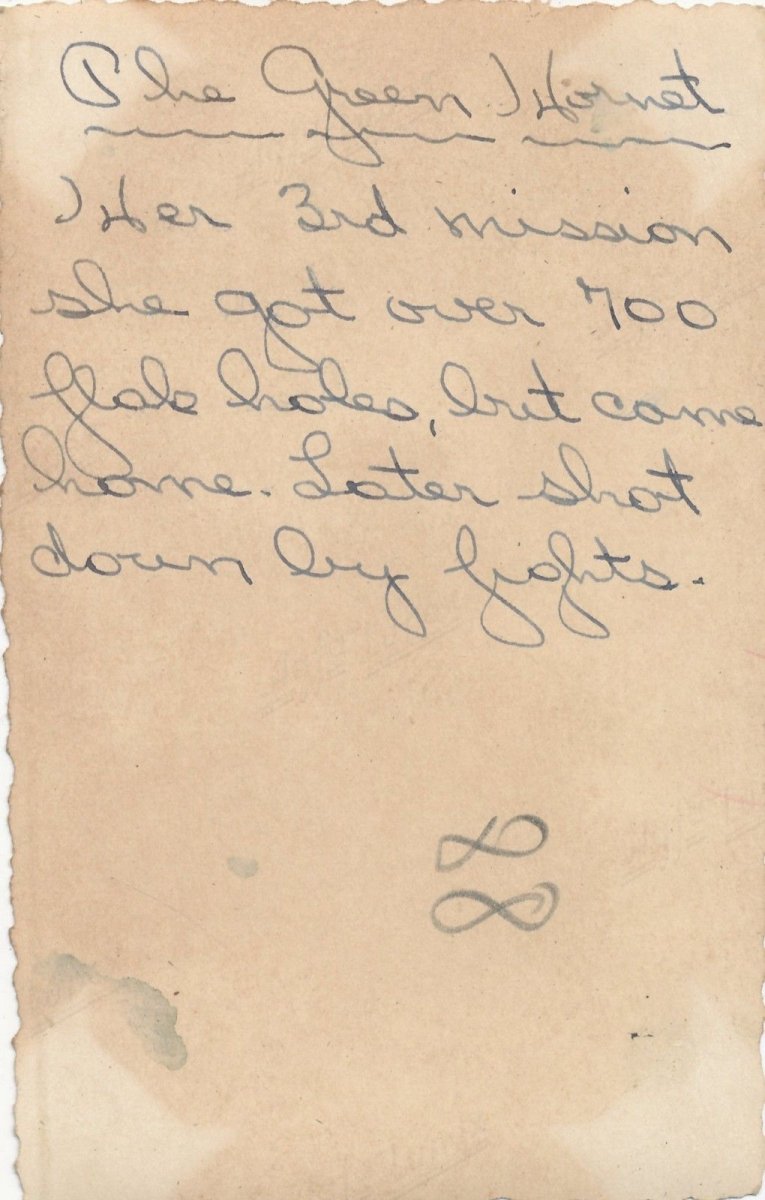 The Green Hornet
Her 3rd mission
she got over 700
flak holes, but came
home. Later shot
down by fights.
88